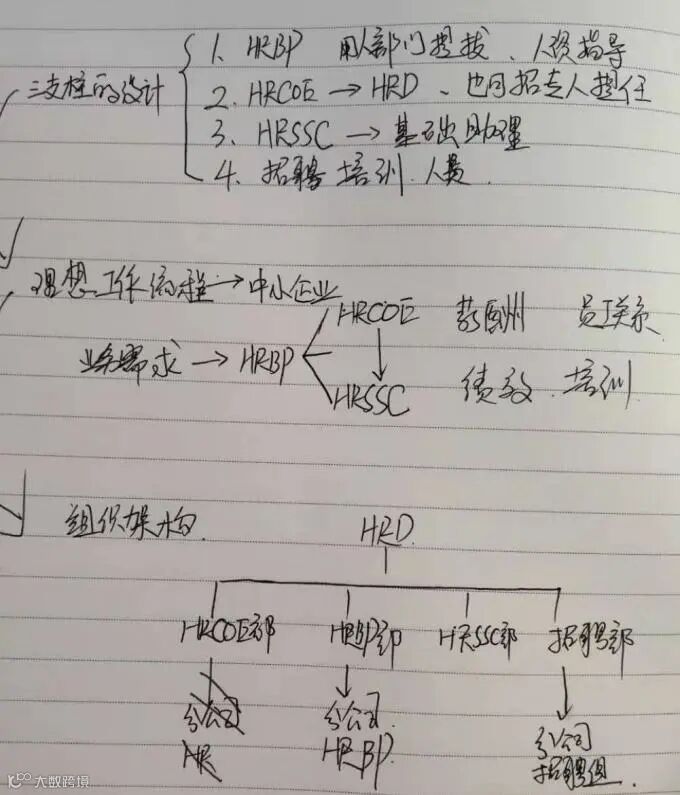 三支柱的设计
1. HRBP 用人部门提拔、人资指导
2. HRCOE → HRD、也可招专人担任
3. HRSSC → 基础助理
4. 招聘 培训 人员.
理想工作流程 → 中小企业
业务需求 → HRBP
HRCOE 薪酬 员工关系
HRSSC 绩效、培训
组织架构
HRD
HRCOE部 HRBP部 HRSSC部 招聘部
分公司 分公司 分公司
HR HRBP 招聘组
大数跨境